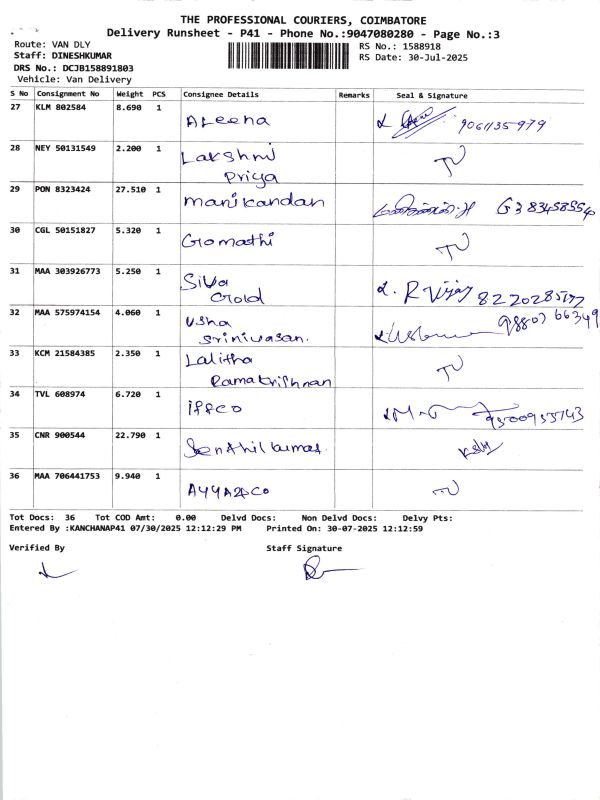 THE PROFESSIONAL COURIERS, COIMBATORE
Delivery Runsheet - P41 - Phone No.:9047080280 - Page No.:3
Route: VAN DLY
RS No.: 1588918
Staff: DINESHKUMAR
RS Date: 30-Jul-2025
DRS No.: DCJB158891803
Vehicle: Van Delivery
S No Consignment No Weight PCS Consignee Details Remarks Seal & Signature
27 KLM 802584 8.690 1 ALeena 9061135979
28 NEY 50131549 2.200 1 Lakshmi
Priya
29 PON 8323424 27.510 1 manikandan
30 CGL 50151827 5.320 1 Gomathi
31 MAA 303926773 5.250 1 Siva R Vijay
Gold
32 MAA 575974154 4.060 1 Usha
Srinivasan.
33 KCM 21584385 2.350 1 Lalitha
Ramakrishnan
34 TVL 608974 6.720 1 iffco
35 CNR 900544 22.790 1 Senthilkumar
36 MAA 706441753 9.940 1
Tot Docs: 36 Tot COD Amt: 0.00 Delvd Docs: Non Delvd Docs: Delvy Pts:
Entered By :KANCHANAP41 07/30/2025 12:12:29 PM Printed On: 30-07-2025 12:12:59
Verified By Staff Signature